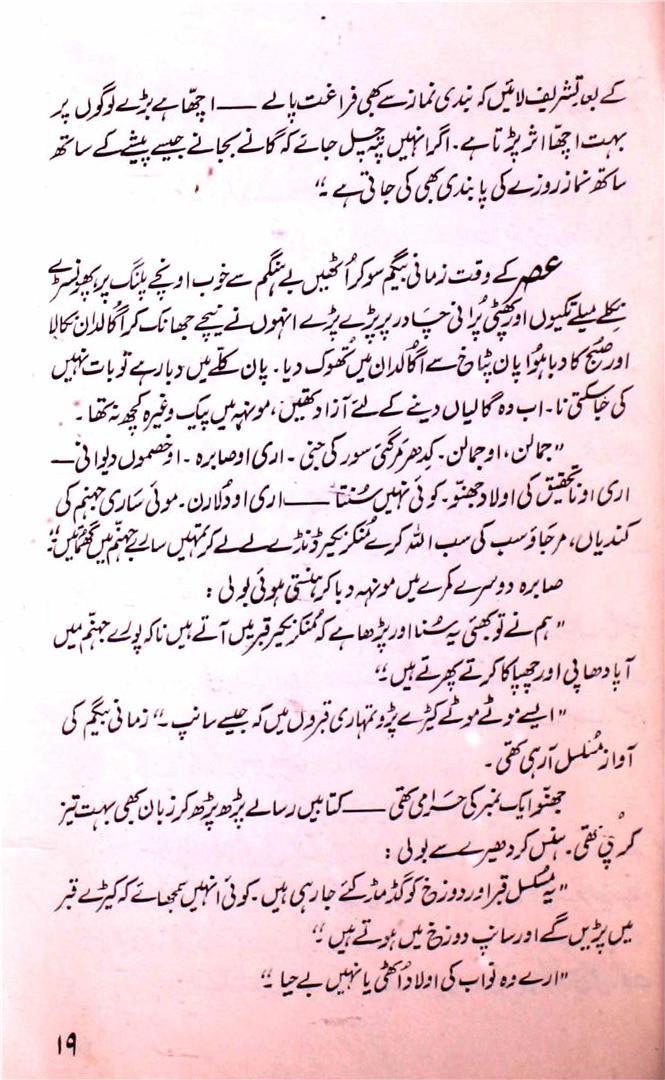 کے بعد تشریف لائیں کہ بندی نماز سے بھی فراغت پالے — اچھا ہے بڑے لوگوں پر
بہت اچھا اثر پڑتا ہے۔ اگر انہیں پتہ چل جائے کہ گانے بجانے جیسے پیشے کے ساتھ
ساتھ نماز روزے کی پابندی بھی کی جاتی ہے۔“
عصر کے وقت زمانی بیگم سو کر اُٹھیں بے ہنگم سے خوب اونچے پلنگ پر پھونسڑے
نکلے میلے تکیوں اور پھٹی پُرانی چادر پر پڑے پڑے انہوں نے نیچے جھانک کر اُگالدان نکالا
اور صبح کا دبا ہوا پان پٹاخ سے اگالدان میں تھوک دیا۔ پان کلّے میں دبا رہے تو بات نہیں
کی جا سکتی نا۔ اب وہ گالیاں دینے کے لئے آزاد تھیں، مونہہ میں پیک وغیرہ کچھ نہ تھا۔
”جمالن، او جمالن۔ کِدھر مَر گئی سور کی جنی۔ اری او صابرہ۔ او خصموں دیوانی —
اری او ناتحقیق کی اولاد جھنّو۔ کوئی نہیں سُنتا — اری او دُلارن۔ موئی ساری جہنم کی
کندیاں، مر جاؤ سب کی سب اللہ کرے مُنکر نکیر ڈنڈے لے لے کر تمہیں سارے جہنّم میں گھُمائیں۔“
صابرہ دوسرے کمرے میں مونہہ دبا کر ہنستی ہوئی بولی :
”ہم نے تو بھئی یہ سُنا اور پڑھا ہے کہ مُنکر نکیر قبر میں آتے ہیں نا کہ پورے جہنّم میں
آپا دھاپی اور چھپاکا کرتے پھرتے ہیں۔“
”ایسے موٹے موٹے کیڑے پڑو تمہاری قبروں میں کہ جیسے سانپ۔“ زمانی بیگم کی
آواز مُسلسل آ رہی تھی۔
جھنّو ایک نمبر کی حَرامی تھی — کتابیں رسالے پڑھ پڑھ کر زبان بھی بہت تیز
کر لی تھی۔ ہنس کر دھیرے سے بولی :
”یہ مُسلسل قبر اور دوزخ کو گڈ مڈ کئے جا رہی ہیں۔ کوئی انہیں سمجھائے کہ کیڑے قبر
میں پڑیں گے اور سانپ دوزخ میں ہوتے ہیں۔“
”ارے وہ نواب کی اولاد اُٹھی یا نہیں بے حیا۔“
۱۹